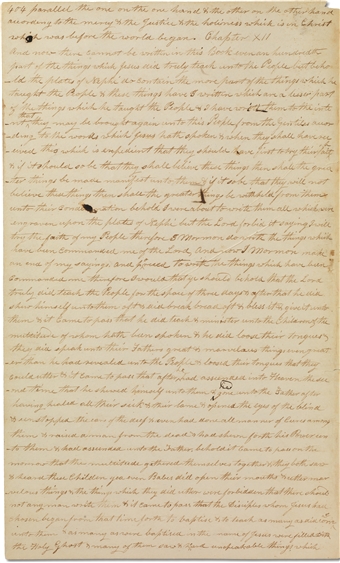 404 parallel the one on the one hand & the other on the other hand
according to the mercy & the Justice & the holiness which is in Christ
which was before the world began. Chapter XII
And now there cannot be written in this Book even an hundredth
part of the things which Jesus did truly teach unto the People but beh-
-old the plates of Nephi do contain the more part of the things which he
taught the People & these things have I written which are a lesser part
of the things which he taught the People & I have them to the inte
that may be brought again unto this People from the gentiles acco-
rding to the words which Jesus hath spoken & when they shall have re-
-ceived this which is expedient that they should have first to try their faith
& if it should so be that they shall believe these things then shall the grea-
-ter things be made unto & if it so be that they will not
believe these things then shall the greater things be withheld from them
unto their behold I were about to write them all which were
engraven upon the plates of Nephi but the Lord forbid it saying I will
try the faith of my People therefore I Mormon do write the things which
have been commanded me of the Lord And now I Mormon make
an end of my sayings and proceed to write the things which have been
commanded me therefore I would that ye should behold that the Lord
truly did teach the People for the space of three days & after that he did
shew himself unto them oft & did break bread oft & bless it & give it unto
them & it came to pass that he did teach & minister unto the Children of the
multitude of whom hath been spoken & he did loose their tongues &
they did speak unto their Fathers great & marvelous things even great-
-er than he had revealed unto the People & loosed their tongues that they
could utter & it came to pass that after he had ascended into Heaven the seco-
-nd time that he shewed himself unto them & gone unto the Father after
having healed all their sick & their lame & opened the eyes of the blind
& unstopped the ears of the deaf & even had done all manner of cures among
them & raised a man from the dead & had shewn forth his power unto
to them & had ascended unto the Father behold it came to pass on the
morrow that the multitude gathered themselves together & they both saw
& heard these Children yea even Babes did open their mouths & utter mar-
velous things & the things which they did utter were forbidden that there should
not any man write them & it came to pass that the Disciples whom Jesus had
chosen began from that time forth to baptize & to teach as many as did come
unto them & as many as were baptized in the name of Jesus were filled with
the Holy Ghost & many of them saw & heard unspeakable things which